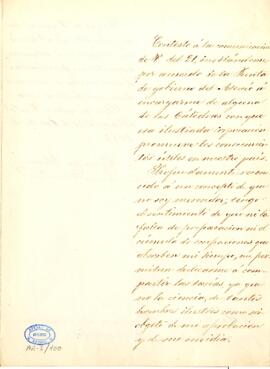 Contesto á la comunicacion
de V. del 21, invitándome
por acuerdo de la Junta
de gobierno del Ateneo á
encargarme de alguna
de las Cátedras con que
esa ilustrada Corporacion
promueve los conocimien-
tos útiles en nuestro país.
Profundamente recono-
cido á un concepto de que
no soy merecedor, tengo
el sentimiento de que ni la
falta de preparacion ni el
cúmulo de ocupaciones que
absorben mi tiempo, me per-
miten dedicarme á com-
partir las tareas ya que
no la ciencia, de tantos
hombres ilustres como son
objeto de mi aprobacion
y de mi envidia.